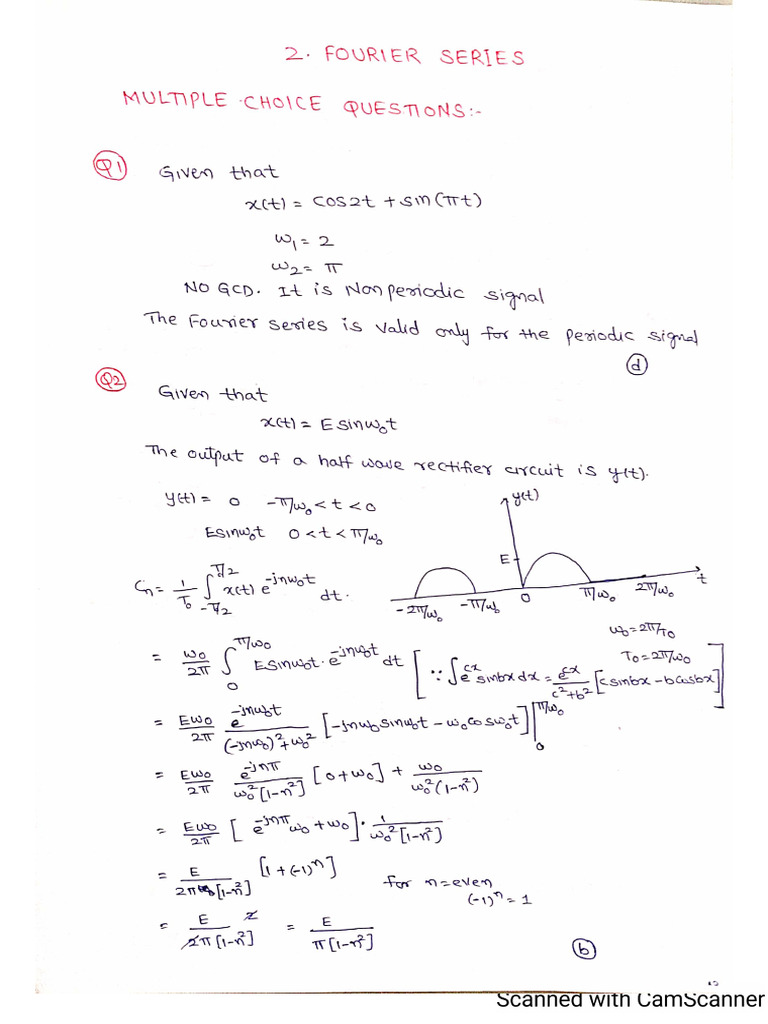 2. FOURIER SERIES
MULTIPLE CHOICE QUESTIONS:-
Q1 Given that
x(t) = cos2t + sin(πt)
ω₁ = 2
ω₂ = π
NO GCD. It is Non periodic signal
The Fourier series is valid only for the periodic signal
(d)
Q2 Given that
x(t) = E sinω₀t
The output of a half wave rectifier circuit is y(t).
y(t) = 0 -π/ω₀ < t < 0
Esinω₀t 0 < t < π/ω₀
y(t)
E
-2π/ω₀ -π/ω₀ 0 π/ω₀ 2π/ω₀ t
Cn = 1/T₀ ∫_{-T/2}^{T/2} x(t) e^{-jnω₀t} dt.
ω₀ = 2π/T₀
T₀ = 2π/ω₀
= ω₀/2π ∫_{0}^{π/ω₀} E sinω₀t · e^{-jnω₀t} dt [∵ ∫e^{cx} sinbx dx = e^{cx}/(c²+b²) [c sinbx - b cosbx]]
= Eω₀/2π e^{-jnω₀t}/((-jnω₀)²+ω₀²) [-jnω₀ sinω₀t - ω₀ cosω₀t] |_{0}^{π/ω₀}
= Eω₀/2π e^{-jnπ}/(ω₀²[1-n²]) [0+ω₀] + ω₀/(ω₀²(1-n²))
= Eω₀/2π [e^{-jnπ}ω₀ + ω₀] · 1/(ω₀²[1-n²])
= E/(2π[1-n²]) [1+(-1)ⁿ] for n=even
(-1)ⁿ = 1
= E 2/(2π[1-n²]) = E/(π[1-n²])
(b)
Scanned with CamScanner